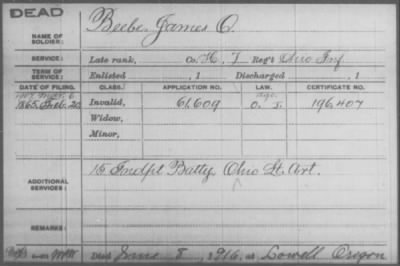 DEAD
NAME OF SOLDIER: Beebe, James O.
SERVICE: Late rank, Co. H, 7 Reg't Ohio Inf
TERM OF SERVICE: Enlisted , 1 Discharged , 1
DATE OF FILING. CLASS. APPLICATION NO. LAW. CERTIFICATE NO.
1865, Feb. 20 Invalid, 61,609 196,407
Widow,
Minor,
ADDITIONAL SERVICES: 15 Indpt Batty Ohio Lt. Art.
REMARKS:
Died June 8, 1916, at Lowell Oregon